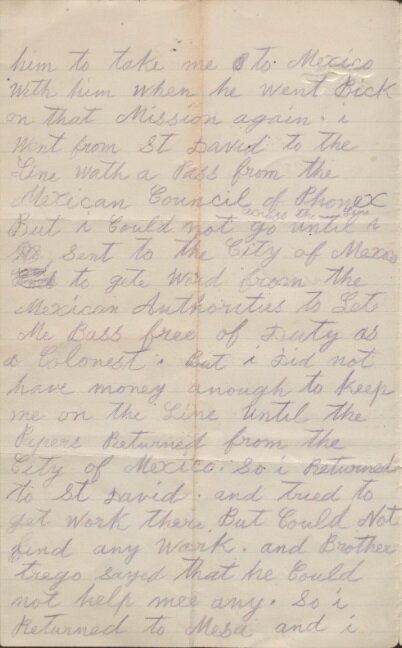 him to take me to Mexico
With him when he went Bick
on that Mission again. i
Went from St David to the
Line wath a Pass from the
Mexican Council of Phonex
across the Line
But i Could not go until i
sent to the City of Mexico
to gete Word from the
Mexican Authorities to Let
Me Bass free of Duty as
a Colonest. But i Did not
have money anough to Keep
me on the Line Until the
Pepers Returned from the
City of Mexico. So i Returned
to St David. and tried to
get work there But Could Not
find any Work. and Brother
trego sayed that he Could
not help mee any. So i
Returned to Mesa and i